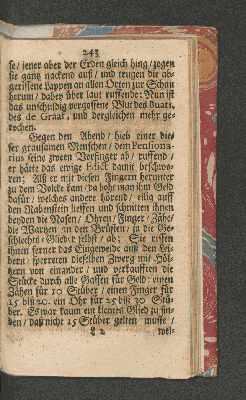 243
se / jener aber der Erden gleich hing / zogen
sie gantz nackend auß / und trugen die ab-
gerissene Lappen an allen Orten zur Schau
herum / dabey über laut ruffende: Nun ist
das unschuldig vergossene Blut des Buats,
des de Graaf, und dergleichen mehr ge-
rochen.
Gegen den Abend / hieb einer die-
ser grausamen Menschen / dem Pensiona-
rius seine zween Vorfinger ab / ruffend /
er hätte das ewige Edict damit beschwo-
ren; Als er mit diesen Fingern herunter
zu dem Volcke kam / da bohe man ihm Geld
dafür / welches andere hörend / eilig auff
den Rabenstein lieffen und schnitten ihnen
beyden die Nasen / Ohren / Finger / Zähe /
die Wartzen an den Brüsten / ja die Ge-
schlechts-Glieder selbst / ab; Sie rissen
ihnen ferner das Eingeweide auß den Lei-
bern / sperreten dieselben Zwerg mit Höl-
tzern von einander / und verkaufften die
Stücke durch alle Gassen für Geld: einen
Zähen für 10 Stüber / einen Finger für
15 biß 20. ein Ohr für 25 biß 30 Stü-
ber. Es war kaum ein kleines Glied zu fin-
den / daß nicht 15 Stüber gelten muste /
2 wel-